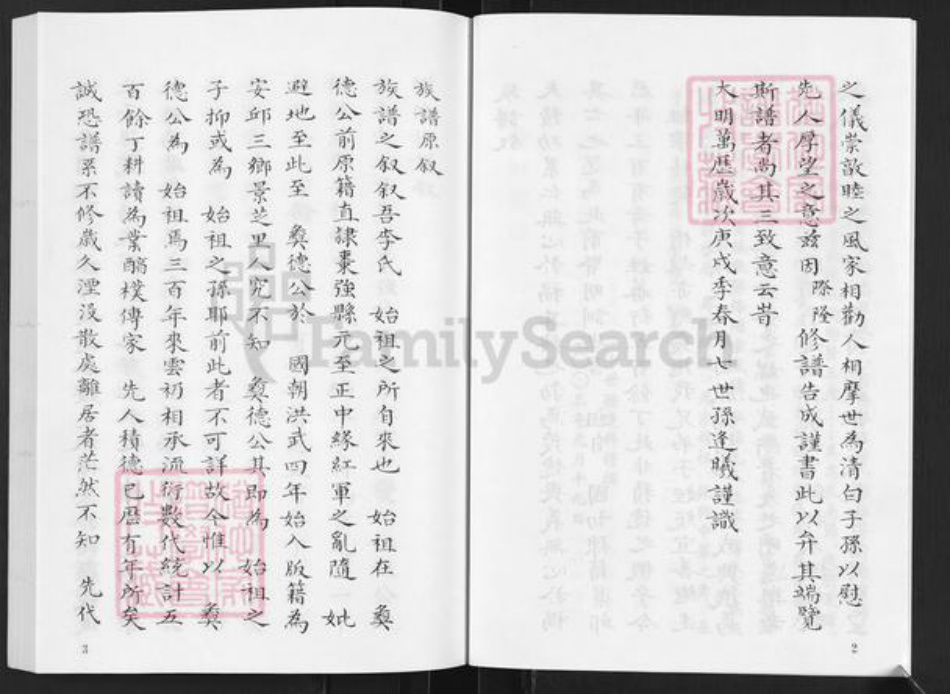 之儀崇敦睦之風家相勸人相摩世為清白子孫以慰
先人厚望之意兹因際隆修譜告成謹書此以弁其端覽
斯譜者尚其三致意云昔
大明萬歷歲次庚戌季春月七世孫逢曦謹識
2
族譜原叙
族譜之叙叙吾李氏 始祖之所自來也 始祖在 奠
德公前原籍直隷棗強縣元至正中緣紅軍之亂隨 妣
避地至此至 奠德公於 國朝洪武四年始入版籍為
安邱三鄉景芝里人究不知 奠德公其即為 始祖之
子抑或為 始祖之孫耶前此者不可詳故今惟以 奠
德公為 始祖焉三百年來雲礽相承流衍數代統計五
百餘丁耕讀為業醕樸傳家 先人積德已歷有年所矣
誠恐譜系不修歲久湮没散處離居者茫然不知 先代
3
FamilySearch